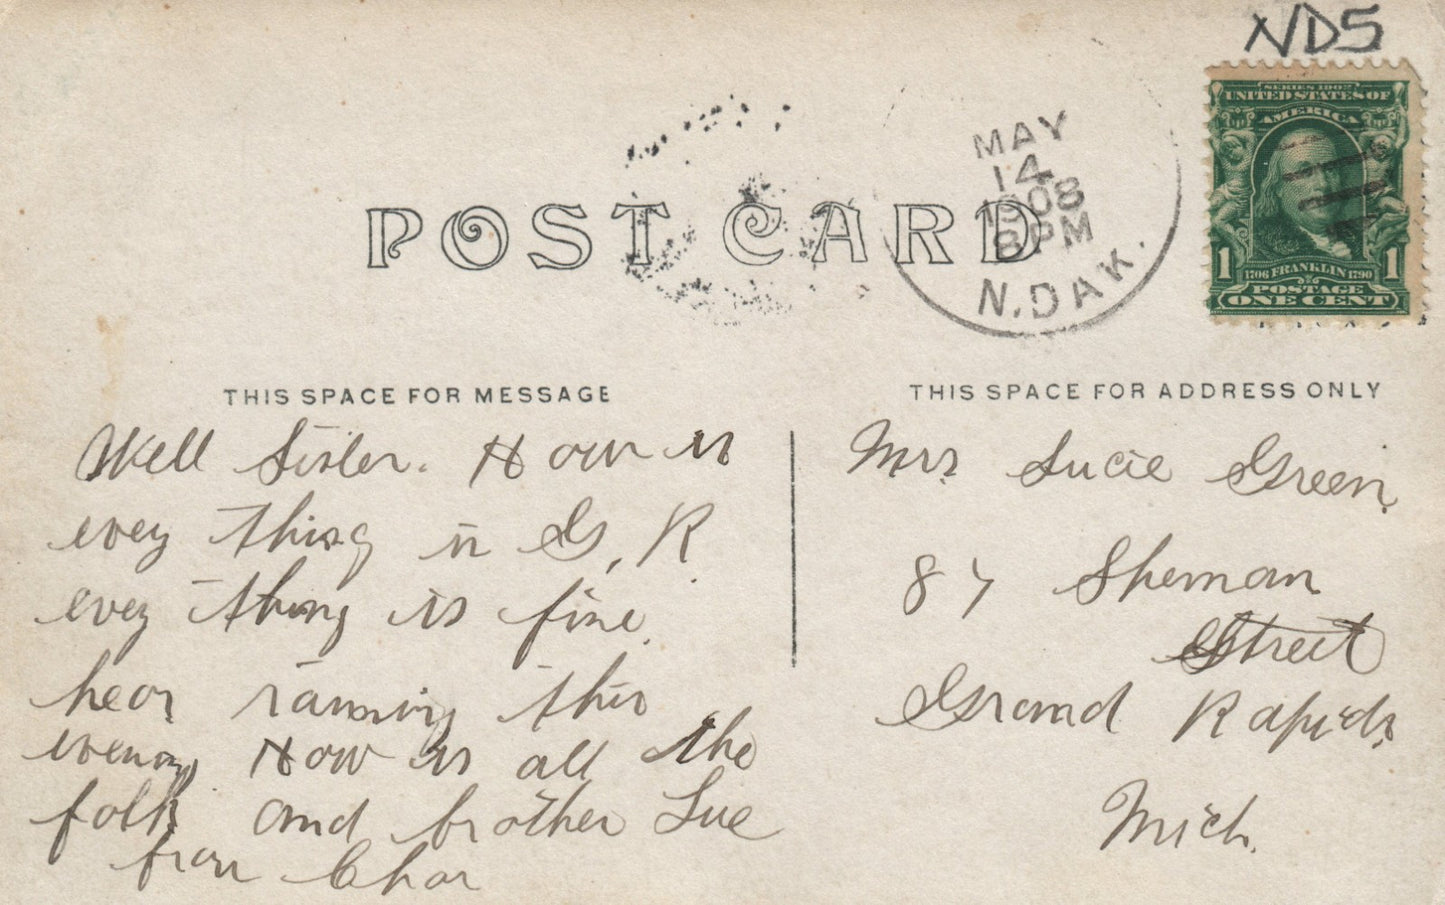 NDS
SERIES 1902
UNITED STATES OF
AMERICA
1 1706 FRANKLIN 1790 1
POSTAGE
ONE CENT
MAY
14
1908
8 PM
N. DAK.
POST CARD
THIS SPACE FOR MESSAGE
Well Sister. How is
evey thing in G. R
evey thing is fine.
hear raining this
evening How is all the
folk and brother Lue
from Char
THIS SPACE FOR ADDRESS ONLY
Mrs Lucie Green
87 Sheman
Street
Grand Rapids
Mich.